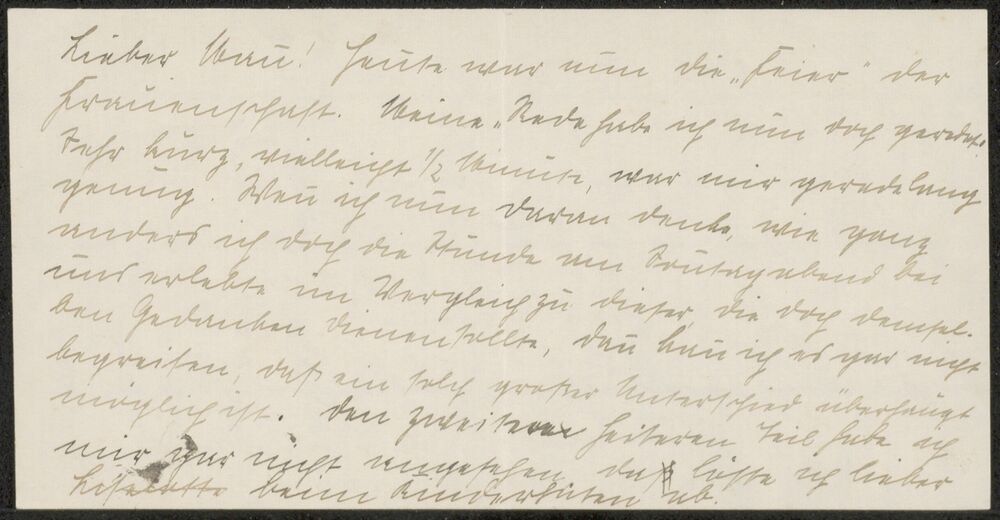 Lieber Mau! Heute war nun die „Feier“ der
Frauenschaft. Meine „Rede habe ich nun doch geredet“.
Sehr kurz, vielleicht 1/2 Minute, war mir gerade lang
genung. Wen̄ ich nun daran denke, wie ganz
anders ich doch die Stunde am Son̄tag abend bei
uns erlebte im Vergleich zu dieser, die doch demsel-
ben Gedanken dienen sollte, dan̄ kan̄ ich es gar nicht
begreifen, daß ein solch großer Unterschied überhaupt
möglich ist. Den zweiten heiteren Teil habe ich
mir gar nicht angesehen, da löste ich lieber
Liselotte beim Kinderhüten ab.